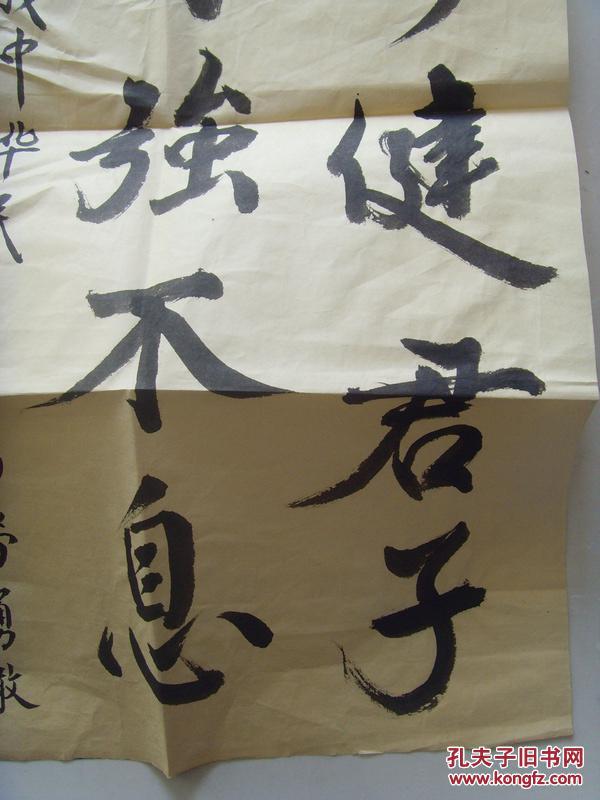 健君子
強不息
中华民
劳勇敢
孔夫子旧书网
www.kongfz.com